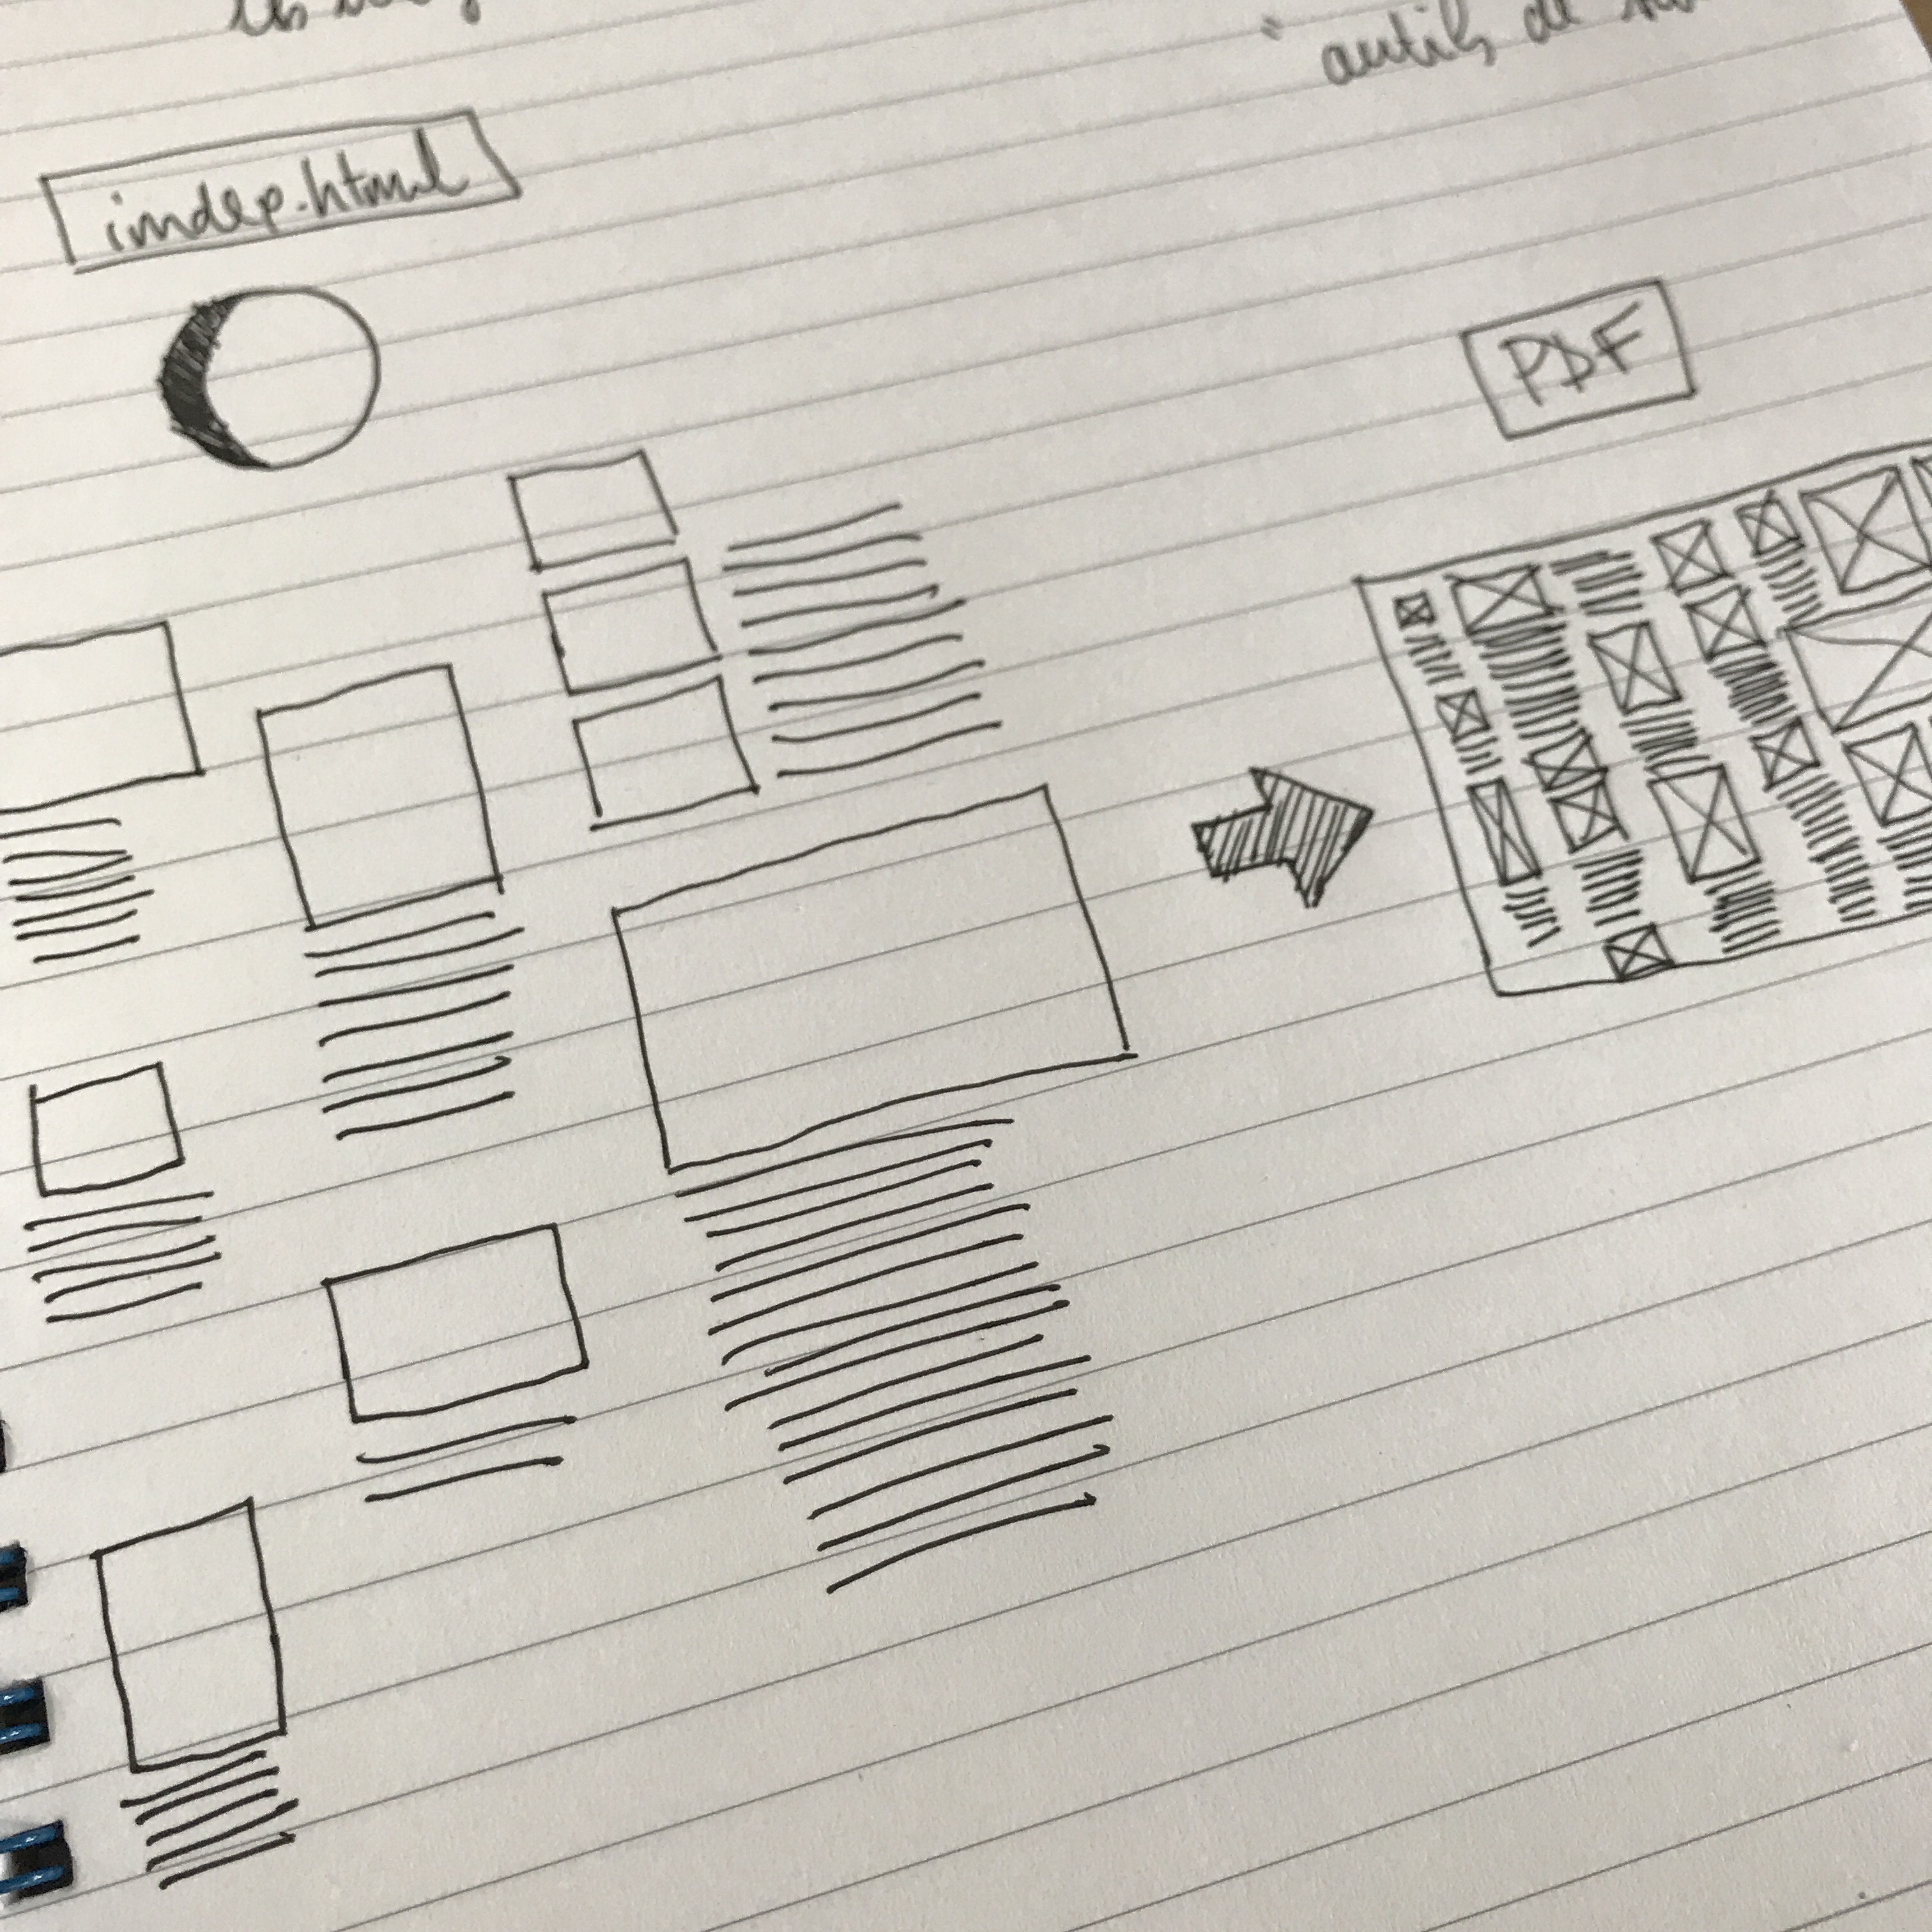 outils de
index.html
PDF